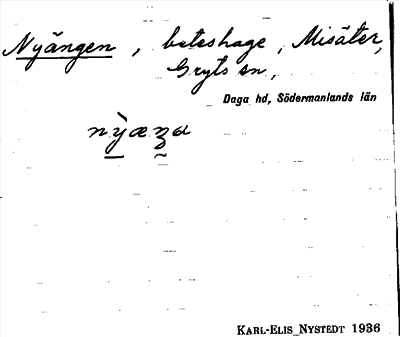 Nyängen, beteshage, Misäter,
Gryts sn,
Daga hd, Södermanlands län
KARL-ELIS NYSTEDT 1936